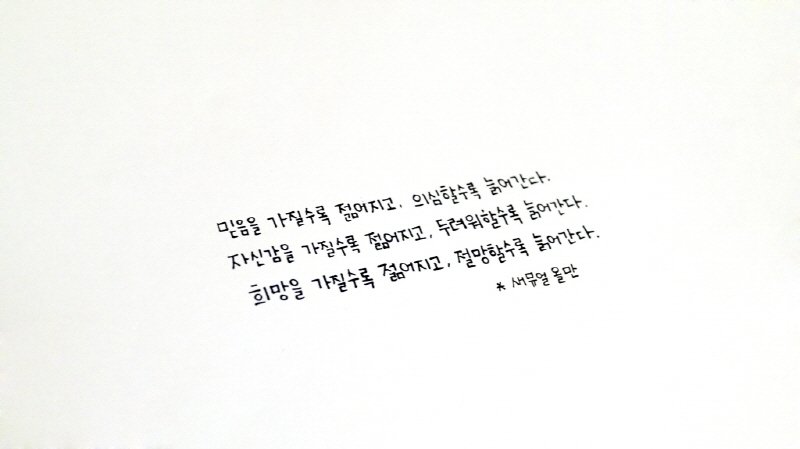 믿음을 가질수록 젊어지고, 의심할수록 늙어간다.
자신감을 가질수록 젊어지고, 두려워할수록 늙어간다.
희망을 가질수록 젊어지고, 절망할수록 늙어간다.
* 새뮤얼 울만